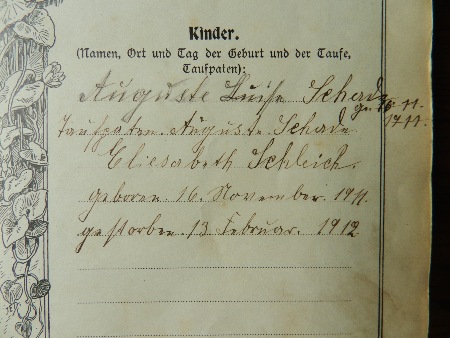 Kinder.
(Namen, Ort und Tag der Geburt und der Taufe,
Taufpaten):
Auguste Luise Schade
16-11-
1911.
Taufpaten Auguste Schade
Eliesabeth Schleich.
geboren 16. November. 1911.
gestorben. 13 Februar. 1912